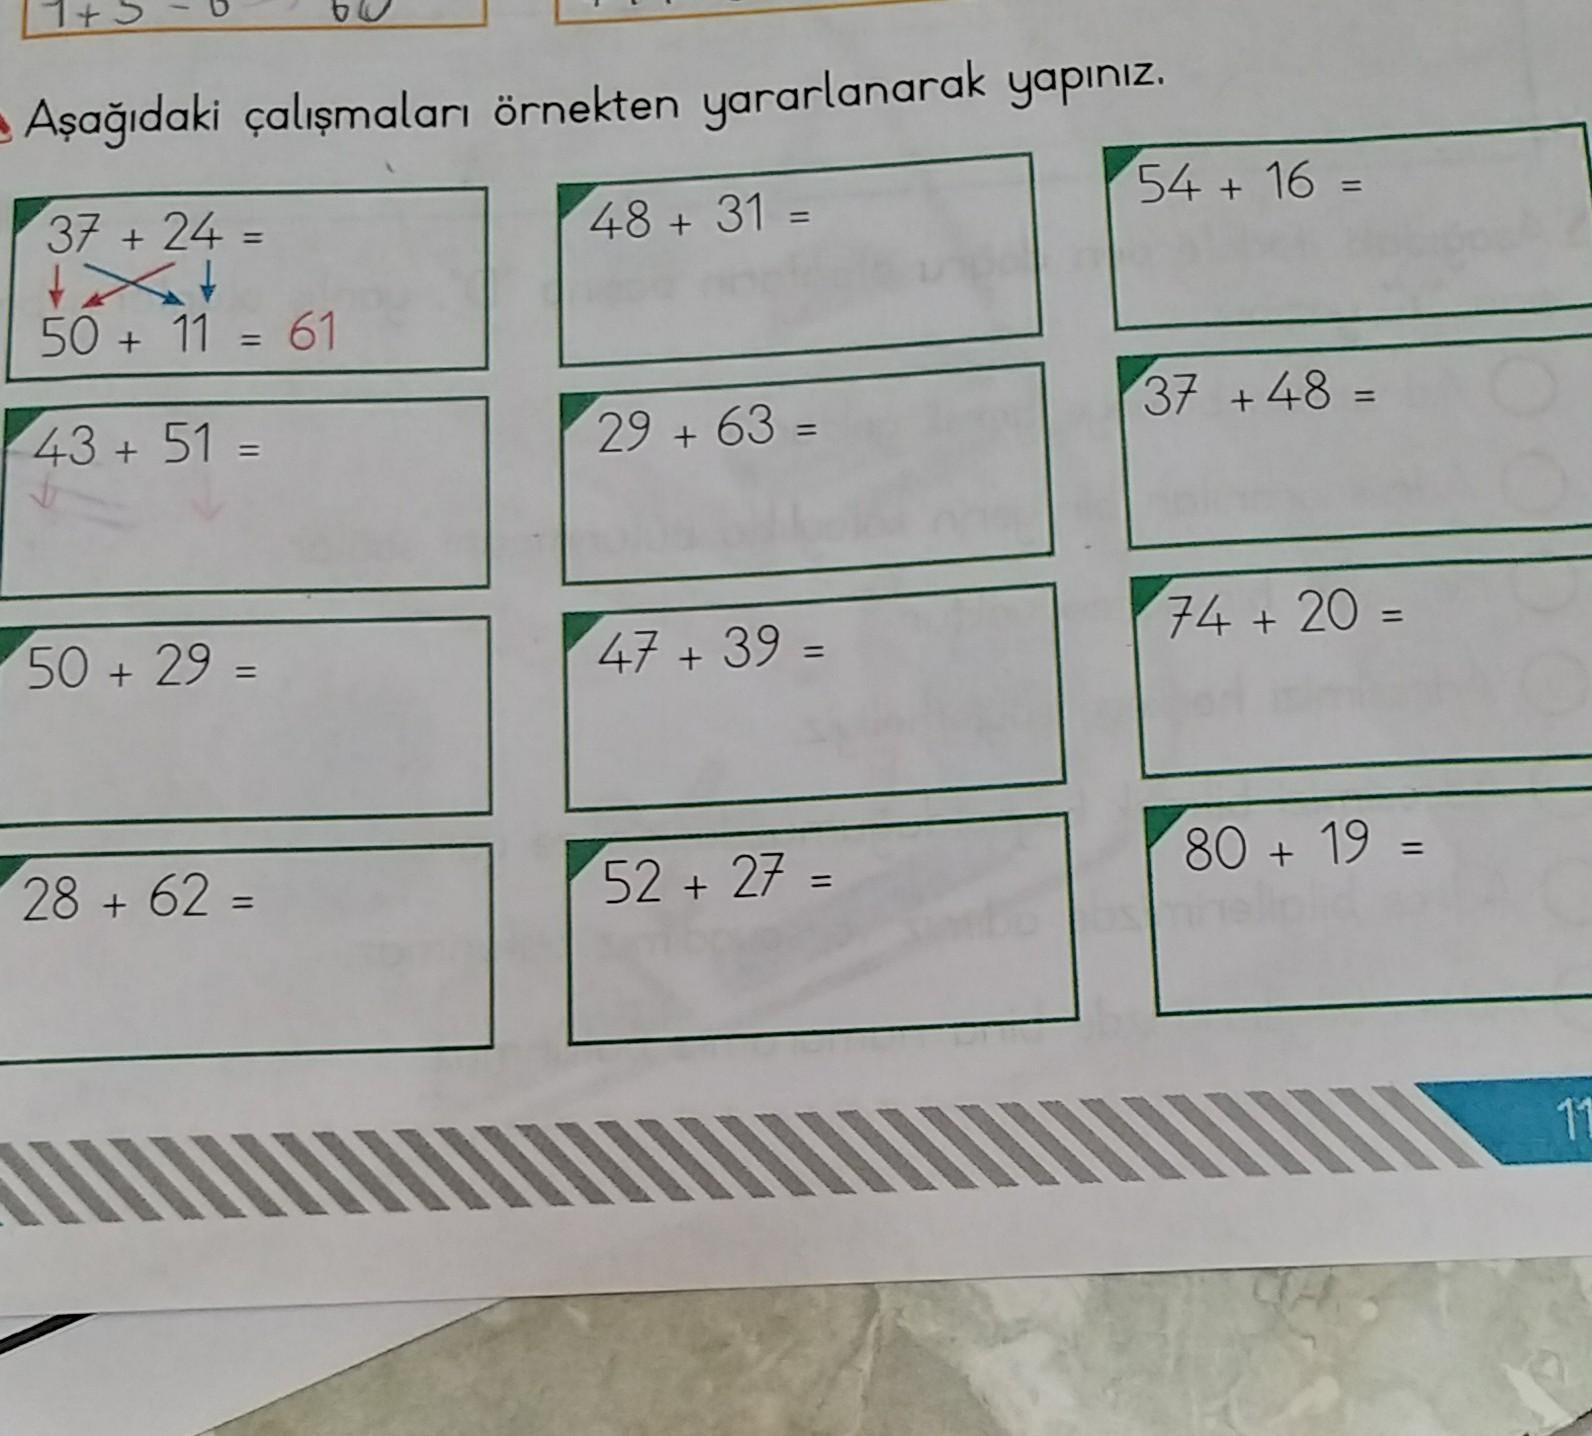 Aşağıdaki çalışmaları örnekten yararlanarak yapınız.
37 + 24 =
50 + 11 = 61
48 + 31 =
54 + 16 =
43 + 51 =
29 + 63 =
37 + 48 =
50 + 29 =
47 + 39 =
74 + 20 =
28 + 62 =
52 + 27 =
80 + 19 =